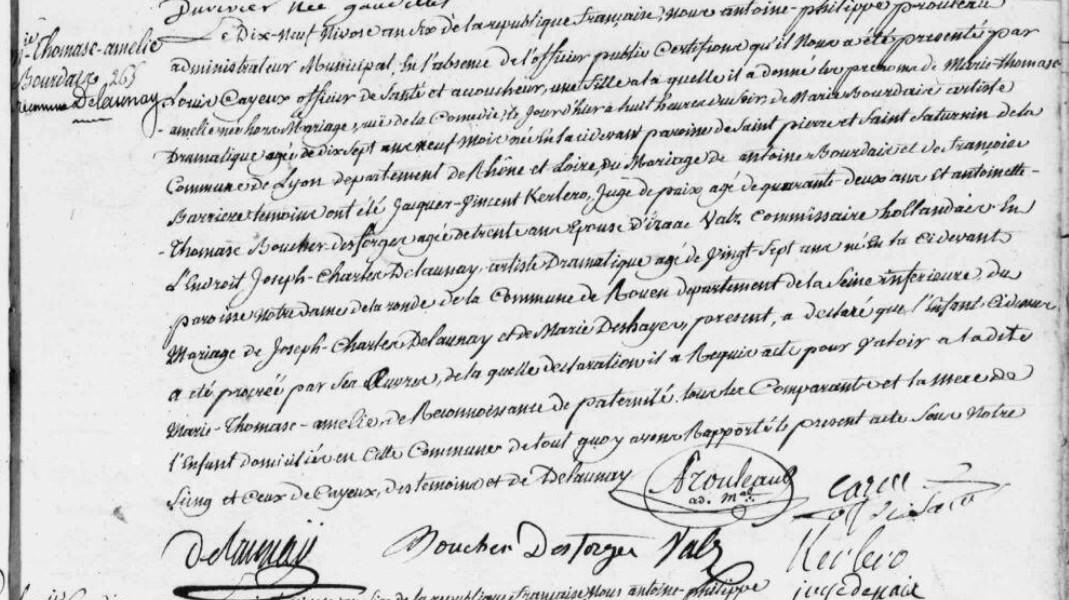 Duvivier née
Le Dix-Neuf Nivose an Six de la republique française, Nous antoine-philippe Prouteau
Thomase-amelie
Bourdaix 265
reconnue Delaunay
administrateur Municipal, En l'absence de l'officier public Certifions qu'il Nous a été présenté par
Louis Cayeux officier de Santé et acoucheur, une fille a la quelle il a donné les prenoms de Marie-Thomase
-amelie née hors Mariage, rüe de la Comedie, le Jour d'hier a huit heures du soir, de Marie Bourdais artiste
Dramatique agée de dix sept ans neuf Mois née En la cidevant paroisse de Saint pierre et Saint Saturnin de la
Commune de Lyon departement de Rhône et Loire, du Mariage de antoine Bourdais et de françoise
Barriere temoins ont été Jacques-Vincent Kerlero, Juge de paix, agé de quarante-deux ans Et antoinette-
-Thomase Boucher desforges agée de trente ans Epouse d'Izaac Valz Commissaire hollandais En
L'Endroit Joseph-Charles Delaunay, artiste Dramatique agé de Vingt-Sept ans né En la Cidevant
paroisse Notre dame de la ronde de la Commune de Rouen departement de la Seine inferieure, du
Mariage de Joseph-Charles Delaunay et de Marie Deshayes, présent, a declaré que l'Enfant Cidessus
a été procréé par Ses Œuvres, de la quelle declaration il a Requis acte pour Valoir a la dite
Marie-Thomase-amelie, de Reconnoissance de paternité. tous les Comparants et la mere de
l'Enfant domiciliés en Cette Commune de tout quoy avons Rapporté le present acte Sous Notre
Seing et Ceux de Cayeux, des temoins et de Delaunay
Prouteau
ad. mal
off de Santé
Delaunay Boucher Desforges Valz Kerlero
juge de paix
de la republique française Nous antoine-philippe